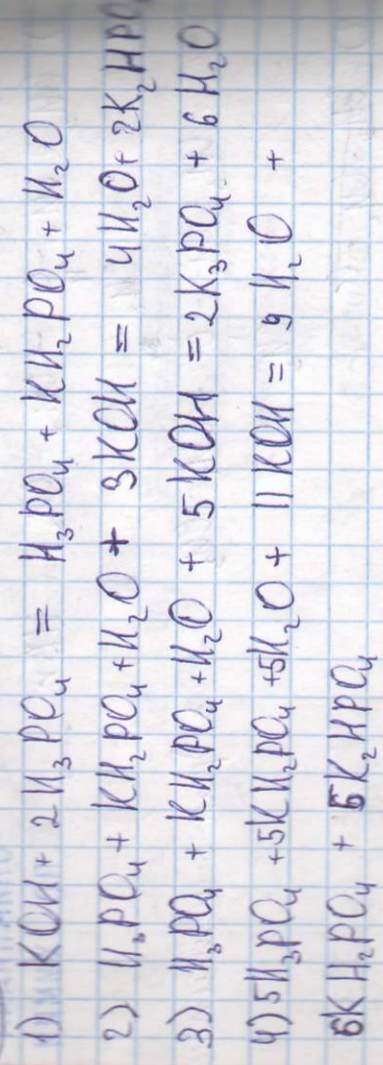 1) KOH + 2H₃PO₄ = H₃PO₄ + KH₂PO₄ + H₂O
2) H₃PO₄ + KH₂PO₄ + H₂O + 3KOH = 4H₂O + 2K₂HPO
3) H₃PO₄ + KH₂PO₄ + H₂O + 5KOH = 2K₃PO₄ + 6H₂O
4) 5H₃PO₄ + 5KH₂PO₄ + 5H₂O + 11KOH = 9H₂O +
6KH₂PO₄ + 5K₂HPO₄